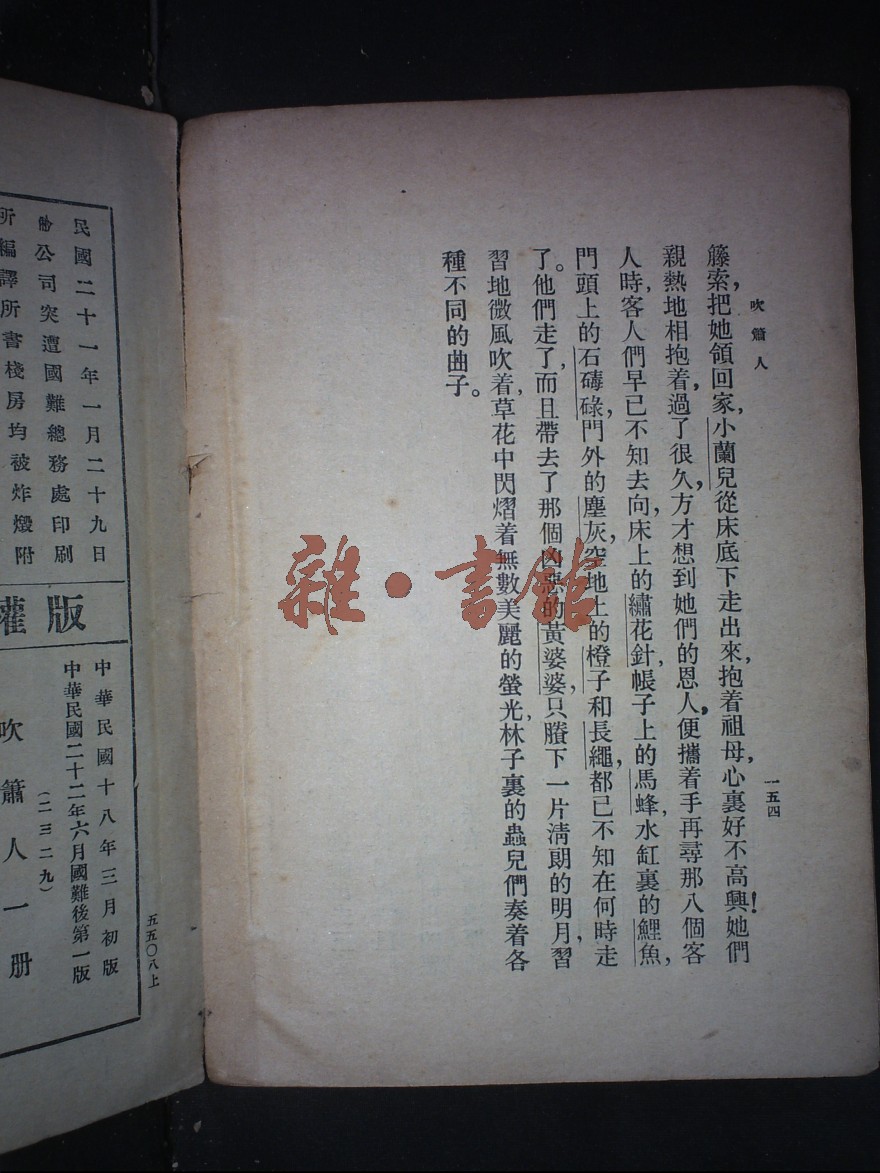 吹簫人
一五四
籐索,把她領回家,小蘭兒從床底下走出來,抱着祖母,心裏好不高興!她們
親熱地相抱着,過了很久,方才想到她們的恩人,便攜着手再尋那八個客
人時,客人們早已不知去向,床上的繡花針,帳子上的馬蜂,水缸裏的鯉魚,
門頭上的石磚碌,門外的塵灰,空地上的橙子和長繩,都已不知在何時走
了。他們走了,而且帶去了那個凶惡的黃婆婆,只賸下一片淸朗的明月,習
習地微風吹着,草花中閃熠着無數美麗的螢光,林子裏的蟲兒們奏着各
種不同的曲子。
雜·書館
五五〇八上
民國二十一年一月二十九日
公司突遭國難總務處印刷
所編譯所書棧房均被炸燬附
版權
中華民國十八年三月初版
中華民國二十二年六月國難後第一版
(二三二九)
吹簫人一册